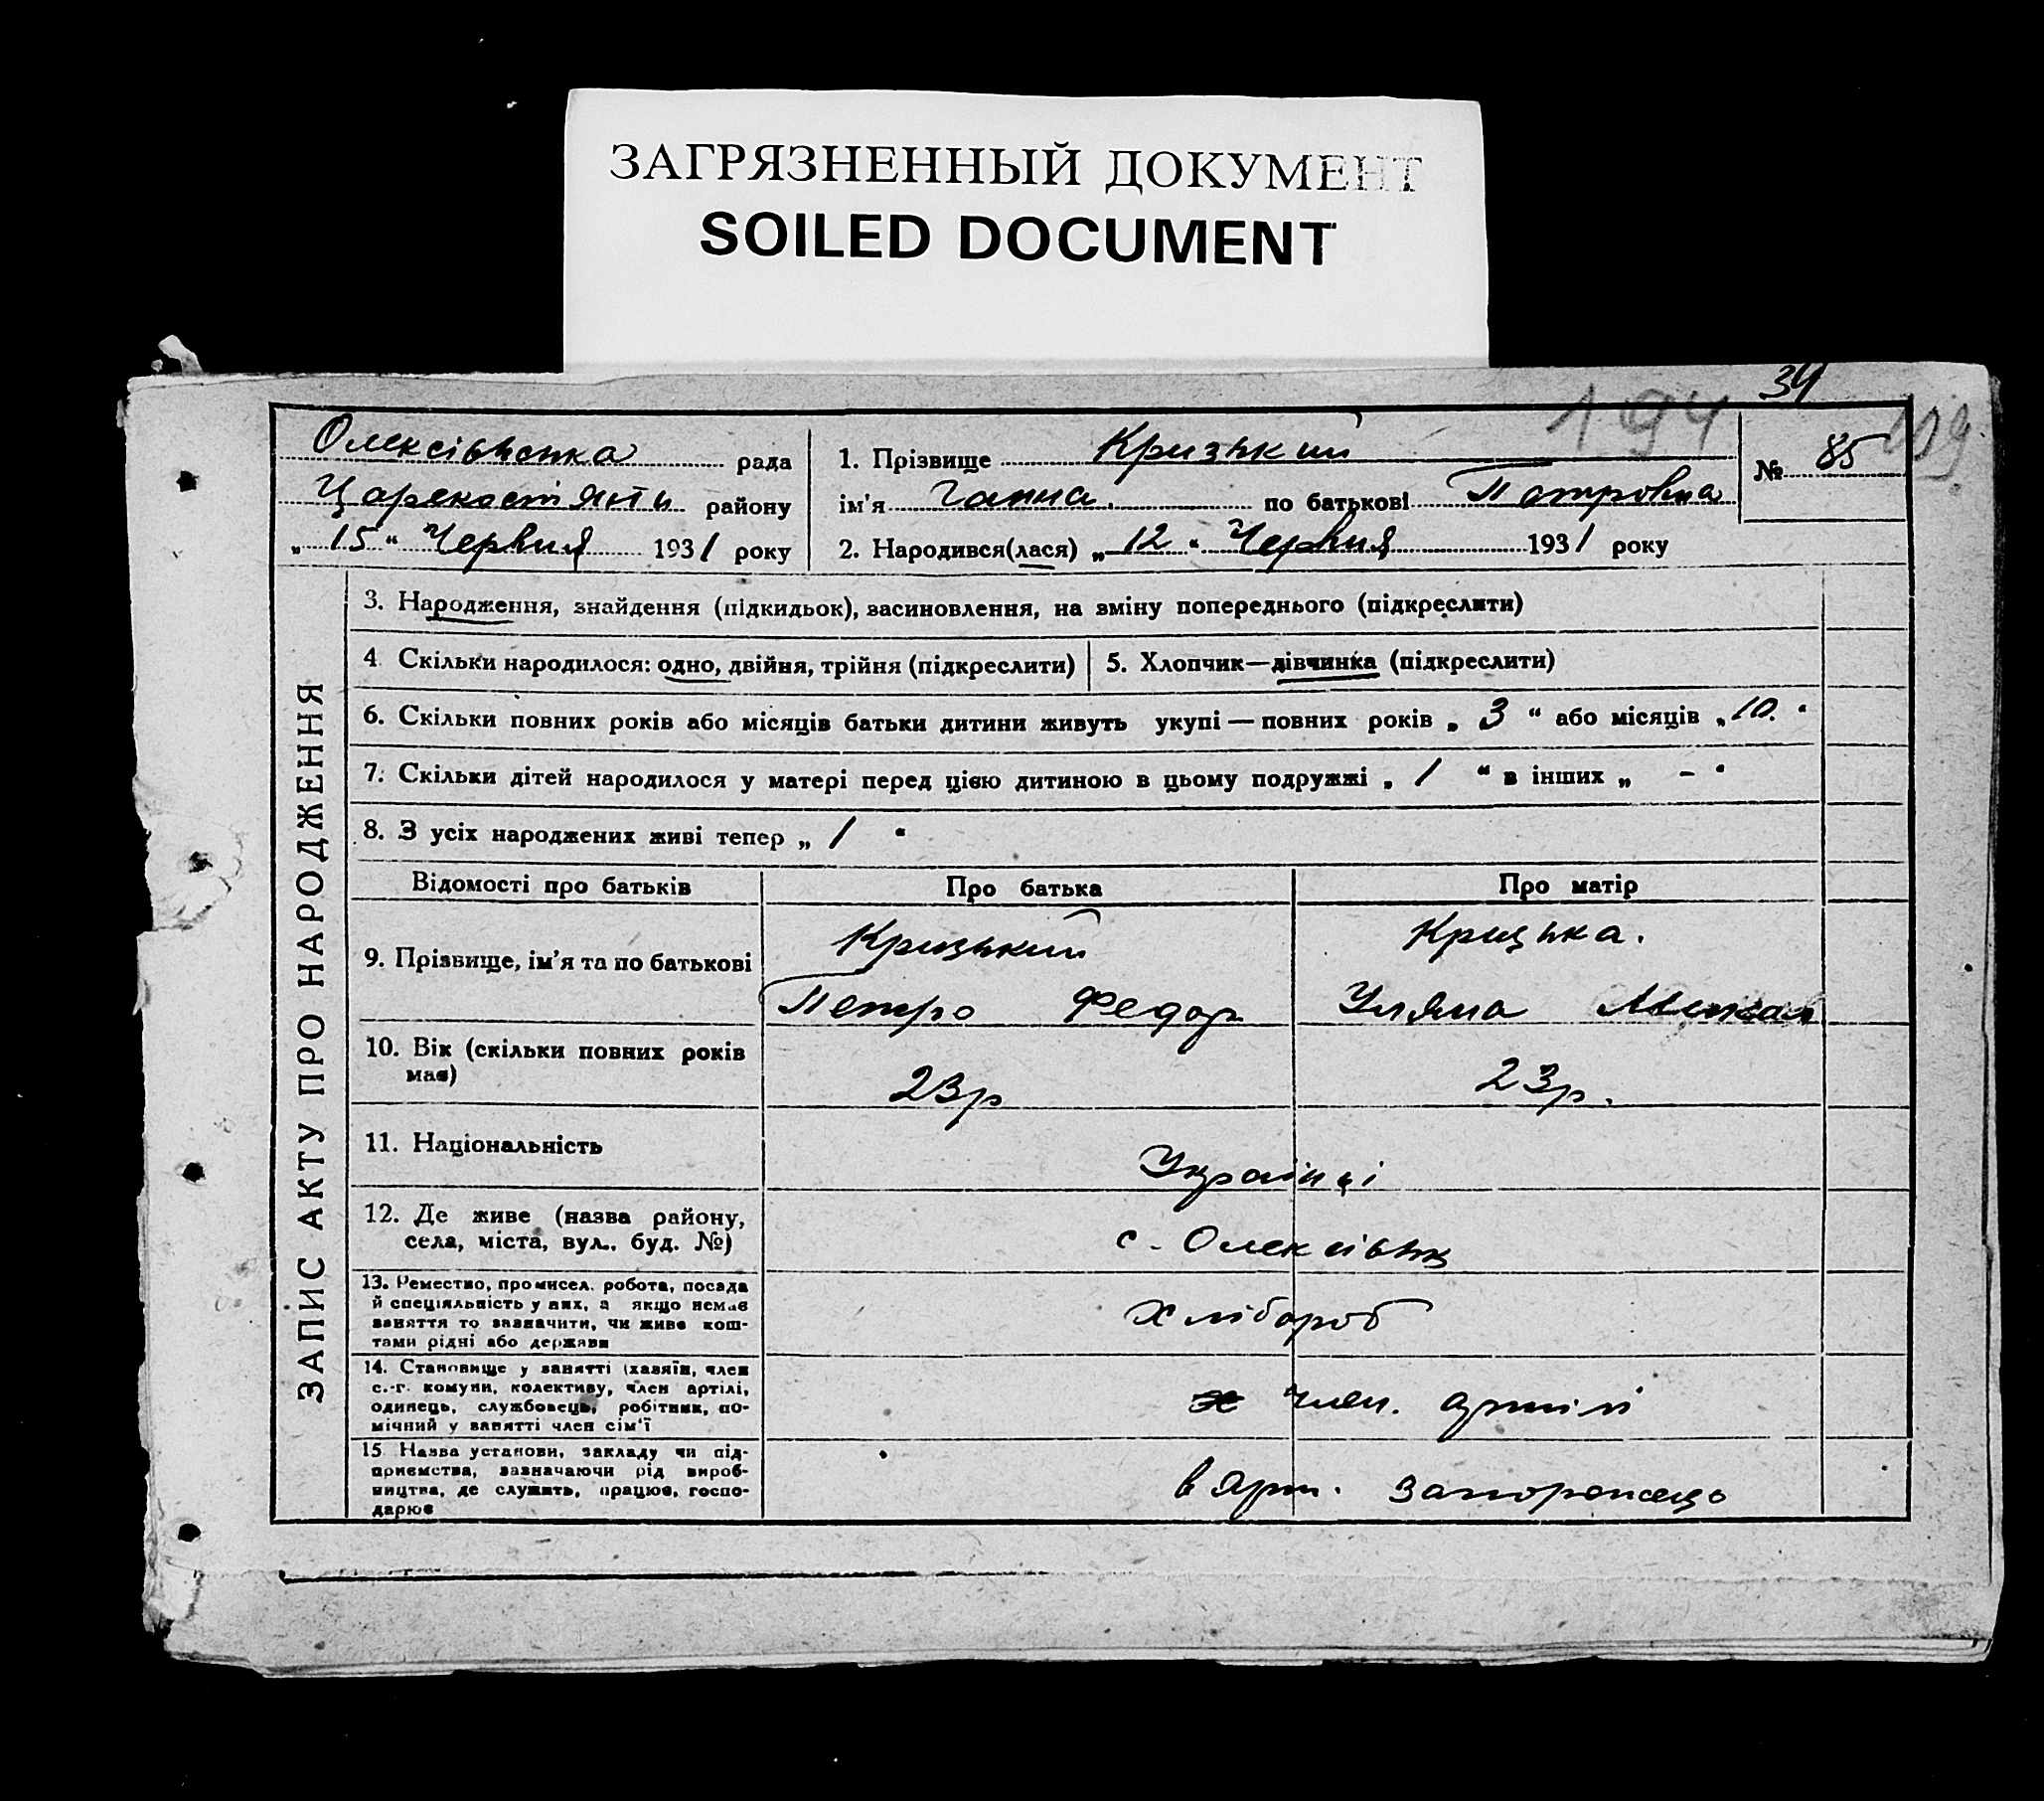 ЗАГРЯЗНЕННЫЙ ДОКУМЕНТ
SOILED DOCUMENT
34
194
119
Олексівська рада
району
„ 15 “ Червня 1931 року
1. Прізвище Крицький
ім'я Ганна. по батькові Петровна
№ 85
2. Народився(лася) „ 12 “ Червня 1931 року
ЗАПИС АКТУ ПРО НАРОДЖЕННЯ
3. Народження, знайдення (підкидьок), засиновлення, на зміну попереднього (підкреслити)
4. Скільки народилося: одно, двійня, трійня (підкреслити)
5. Хлопчик—дівчинка (підкреслити)
6. Скільки повних років або місяців батьки дитини живуть укупі — повних років „ 3 “ або місяців „ 10. “
7. Скільки дітей народилося у матері перед цією дитиною в цьому подружжі „ 1 “ в інших „ - “
8. З усіх народжених живі тепер „ 1 “
Відомості про батьків
Про батька
Про матір
9. Прізвище, ім'я та по батькові
Крицький
Петро Федор
Крицька.
Уляна
10. Вік (скільки повних років
має)
23р
23р.
11. Національність
Українці
12. Де живе (назва району,
села, міста, вул., буд. №)
с. Олексівка
13. Ремество, промисел, робота, посада
й спеціяльність у них, а якщо немає
заняття то зазначити, чи живе кош-
тами рідні або держави
Хлібороб
14. Становище у занятті (хазяїн, член
с.-г. комуни, колективу, член артілі,
одинець, службовець, робітник, по-
мічний у занятті член сім'ї
член. артілі
15. Назва установи, закладу чи під-
приємства, зазначаючи рід вироб-
ництва, де служить, працює, госпо-
дарює
в арт. Запорожець